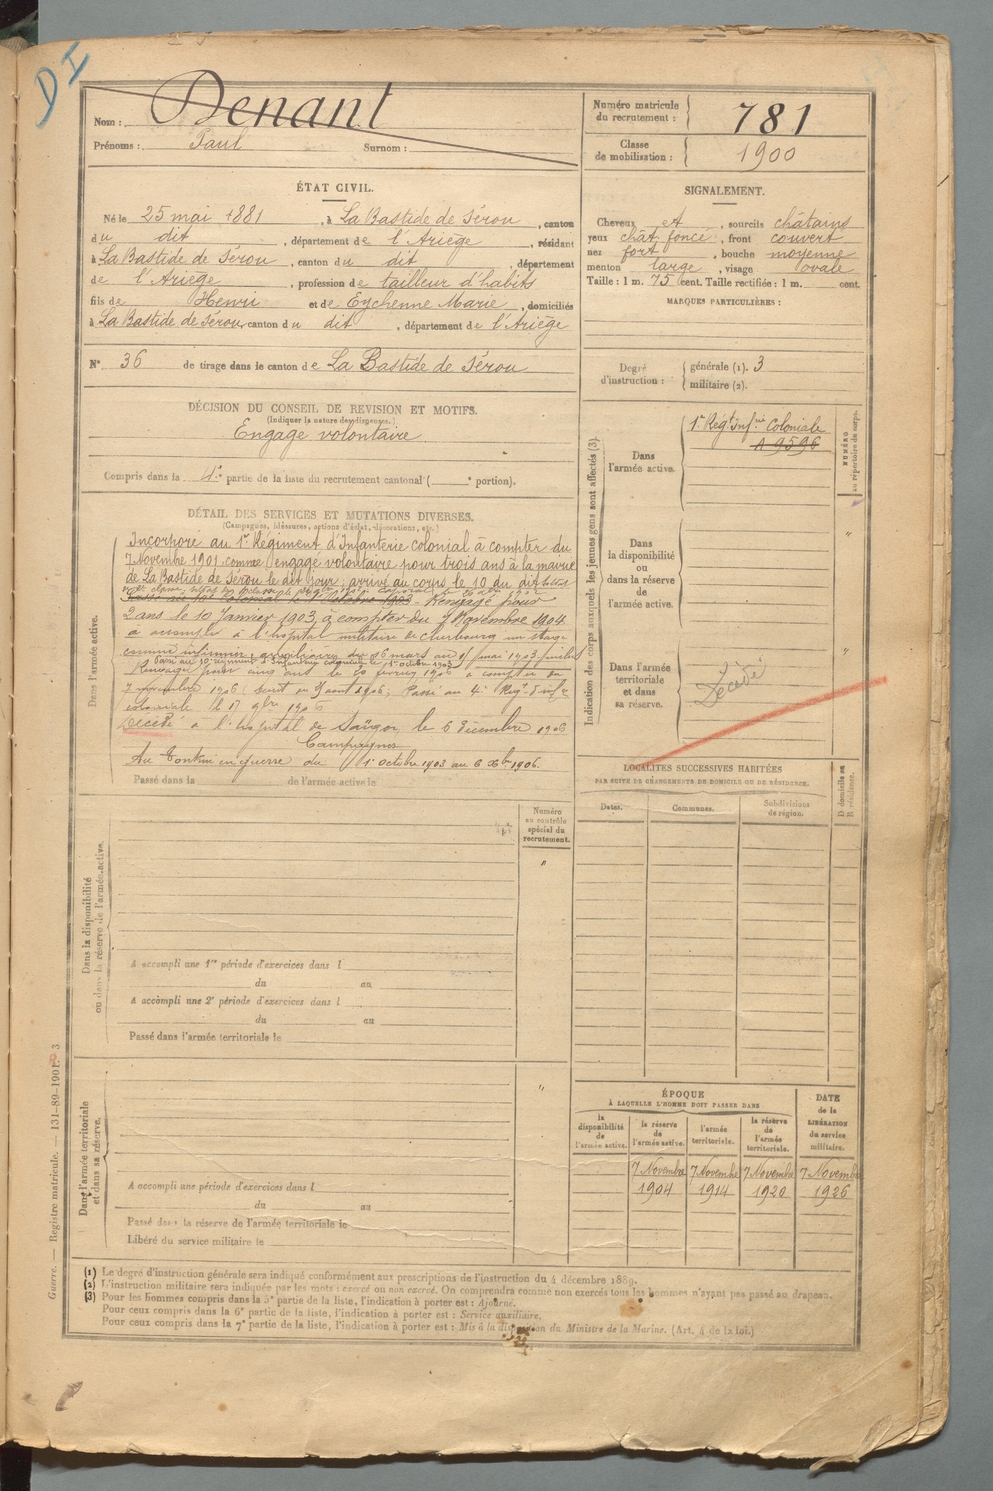 DI
Nom : Denant
Prénoms : Paul Surnom :
Numéro matricule du recrutement : 781
Classe de mobilisation : 1900
ÉTAT CIVIL.
Né le 25 mai 1881, à La Bastide de Sérou, canton
du dit, département de l'Ariège, résidant
à La Bastide de Sérou, canton du dit, département
de l'Ariège, profession de tailleur d'habits
fils de Henri et de Eychenne Marie, domiciliés
à La Bastide de Sérou, canton du dit, département de l'Ariège
N° 36 de tirage dans le canton de La Bastide de Sérou
SIGNALEMENT.
Cheveux et, sourcils châtains
yeux chât. foncé, front couvert
nez fort, bouche moyenne
menton large, visage ovale
Taille : 1 m. 75 cent. Taille rectifiée : 1 m. cent.
MARQUES PARTICULIÈRES :
Degré d'instruction : générale (1). 3
militaire (2).
DÉCISION DU CONSEIL DE REVISION ET MOTIFS.
(Indiquer la nature des dispenses.)
Engagé volontaire
Compris dans la 4e partie de la liste du recrutement cantonal ( e portion).
DÉTAIL DES SERVICES ET MUTATIONS DIVERSES.
(Campagnes, blessures, actions d'éclat, décorations, etc.)
Dans l'armée active.
Incorporé au 1r Régiment d'Infanterie colonial à compter du
7 Novembre 1901, comme engagé volontaire pour trois ans à la mairie
de La Bastide de Sérou le dit jour ; arrivé au corps le 10 du dit
Rengagé pour
2 ans le 10 Janvier 1903, à compter du 7 Novembre 1904
a accompli à l'hôpital militaire de Cherbourg un stage
comme infirmier auxiliaire du 16 mars au
Passé au 10e régiment d'Infanterie coloniale le 1r octobre 1903
Rengagé pour cinq ans le 20 février 1906 à compter du
7 novembre 1906 ; Passé au 4e Régt d'Infie
coloniale le 17 9bre 1906
Décédé à l'hôpital de Saïgon, le 6 décembre 1906
Campagnes
Au Tonkin en guerre du 1r octobre 1903 au 6 Xbre 1906.
Passé dans la de l'armée active le
Indication des corps auxquels les jeunes gens sont affectés (3).
NUMÉRO au répertoire du corps.
Dans l'armée active.
1r Régt Infrie Coloniale
A 9596
Dans la disponibilité ou dans la réserve de l'armée active.
"
Dans l'armée territoriale et dans sa réserve.
Décédé
"
LOCALITÉS SUCCESSIVES HABITÉES
PAR SUITE DE CHANGEMENTS DE DOMICILE OU DE RÉSIDENCE.
Dates. Communes. Subdivisions de région. D domicile ou R résidence.
Dans la disponibilité ou dans la réserve de l'armée active.
Numéro au contrôle spécial du recrutement.
"
A accompli une 1re période d'exercices dans l
du au
A accompli une 2e période d'exercices dans l
du au
Passé dans l'armée territoriale le
Dans l'armée territoriale et dans sa réserve.
"
A accompli une période d'exercices dans l
du au
Passé dans la réserve de l'armée territoriale le
Libéré du service militaire le
ÉPOQUE
À LAQUELLE L'HOMME DOIT PASSER DANS
la disponibilité de l'armée active.
la réserve de l'armée active.
l'armée territoriale.
la réserve de l'armée territoriale.
DATE de la LIBÉRATION du service militaire.
7 Novembre 7 Novembre 7 Novembre 7 Novembre
1904 1914 1920 1926
(1) Le degré d'instruction générale sera indiqué conformément aux prescriptions de l'instruction du 4 décembre 1889.
(2) L'instruction militaire sera indiquée par les mots : exercé ou non exercé. On comprendra comme non exercés tous les hommes n'ayant pas passé au drapeau.
(3) Pour les hommes compris dans la 5e partie de la liste, l'indication à porter est : Ajourné.
Pour ceux compris dans la 6e partie de la liste, l'indication à porter est : Service auxiliaire.
Pour ceux compris dans la 7e partie de la liste, l'indication à porter est : Mis à la disposition du Ministre de la Marine. (Art. 4 de la loi.)
Guerre. — Registre matricule. — 131-89-1901. 3